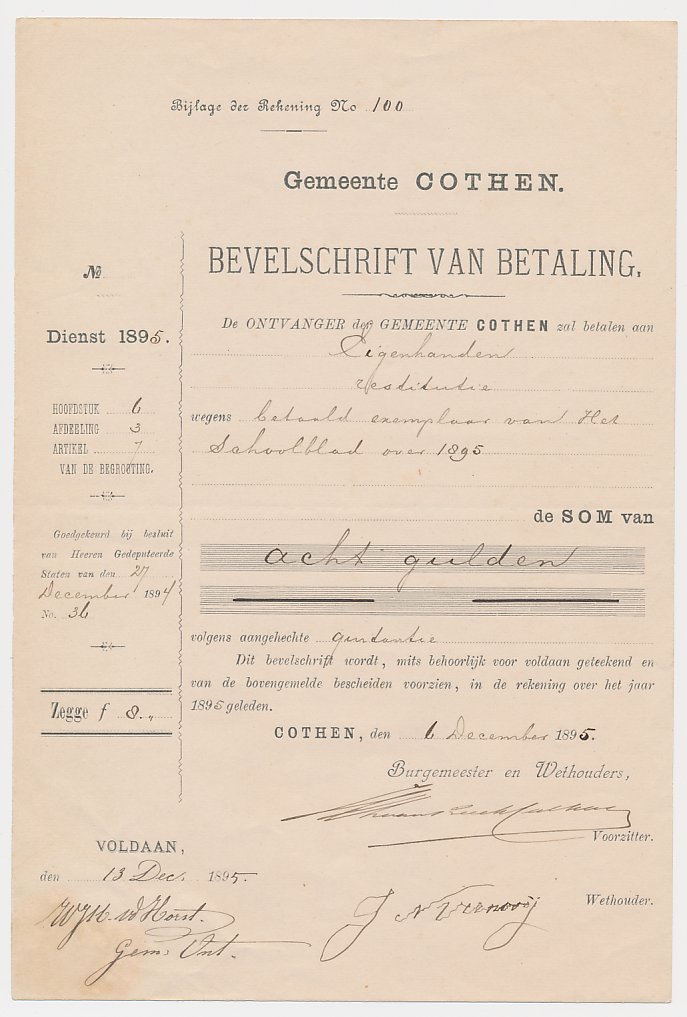 Bijlage der Rekening No 100
Gemeente COTHEN.
BEVELSCHRIFT VAN BETALING.
No
Dienst 1895.
HOOFDSTUK 6
AFDEELING 3
ARTIKEL 7
VAN DE BEGROOTING.
Goedgekeurd bij besluit
van Heeren Gedeputeerde
Staten van den 27
December 1894
No. 36
Zegge f 8.„
De ONTVANGER der GEMEENTE COTHEN zal betalen aan
Eigenhanden
restitutie
wegens betaald exemplaar van Het
Schoolblad over 1895
de SOM van
acht gulden
volgens aangehechte quitantie
Dit bevelschrift wordt, mits behoorlijk voor voldaan geteekend en
van de bovengemelde bescheiden voorzien, in de rekening over het jaar
1895 geleden.
COTHEN, den 6 December 1895.
Burgemeester en Wethouders,
Voorzitter.
J N Vernooij
Wethouder.
VOLDAAN,
den 13 Dec. 1895.
WJH. vd Horst.
Gem: Ont.